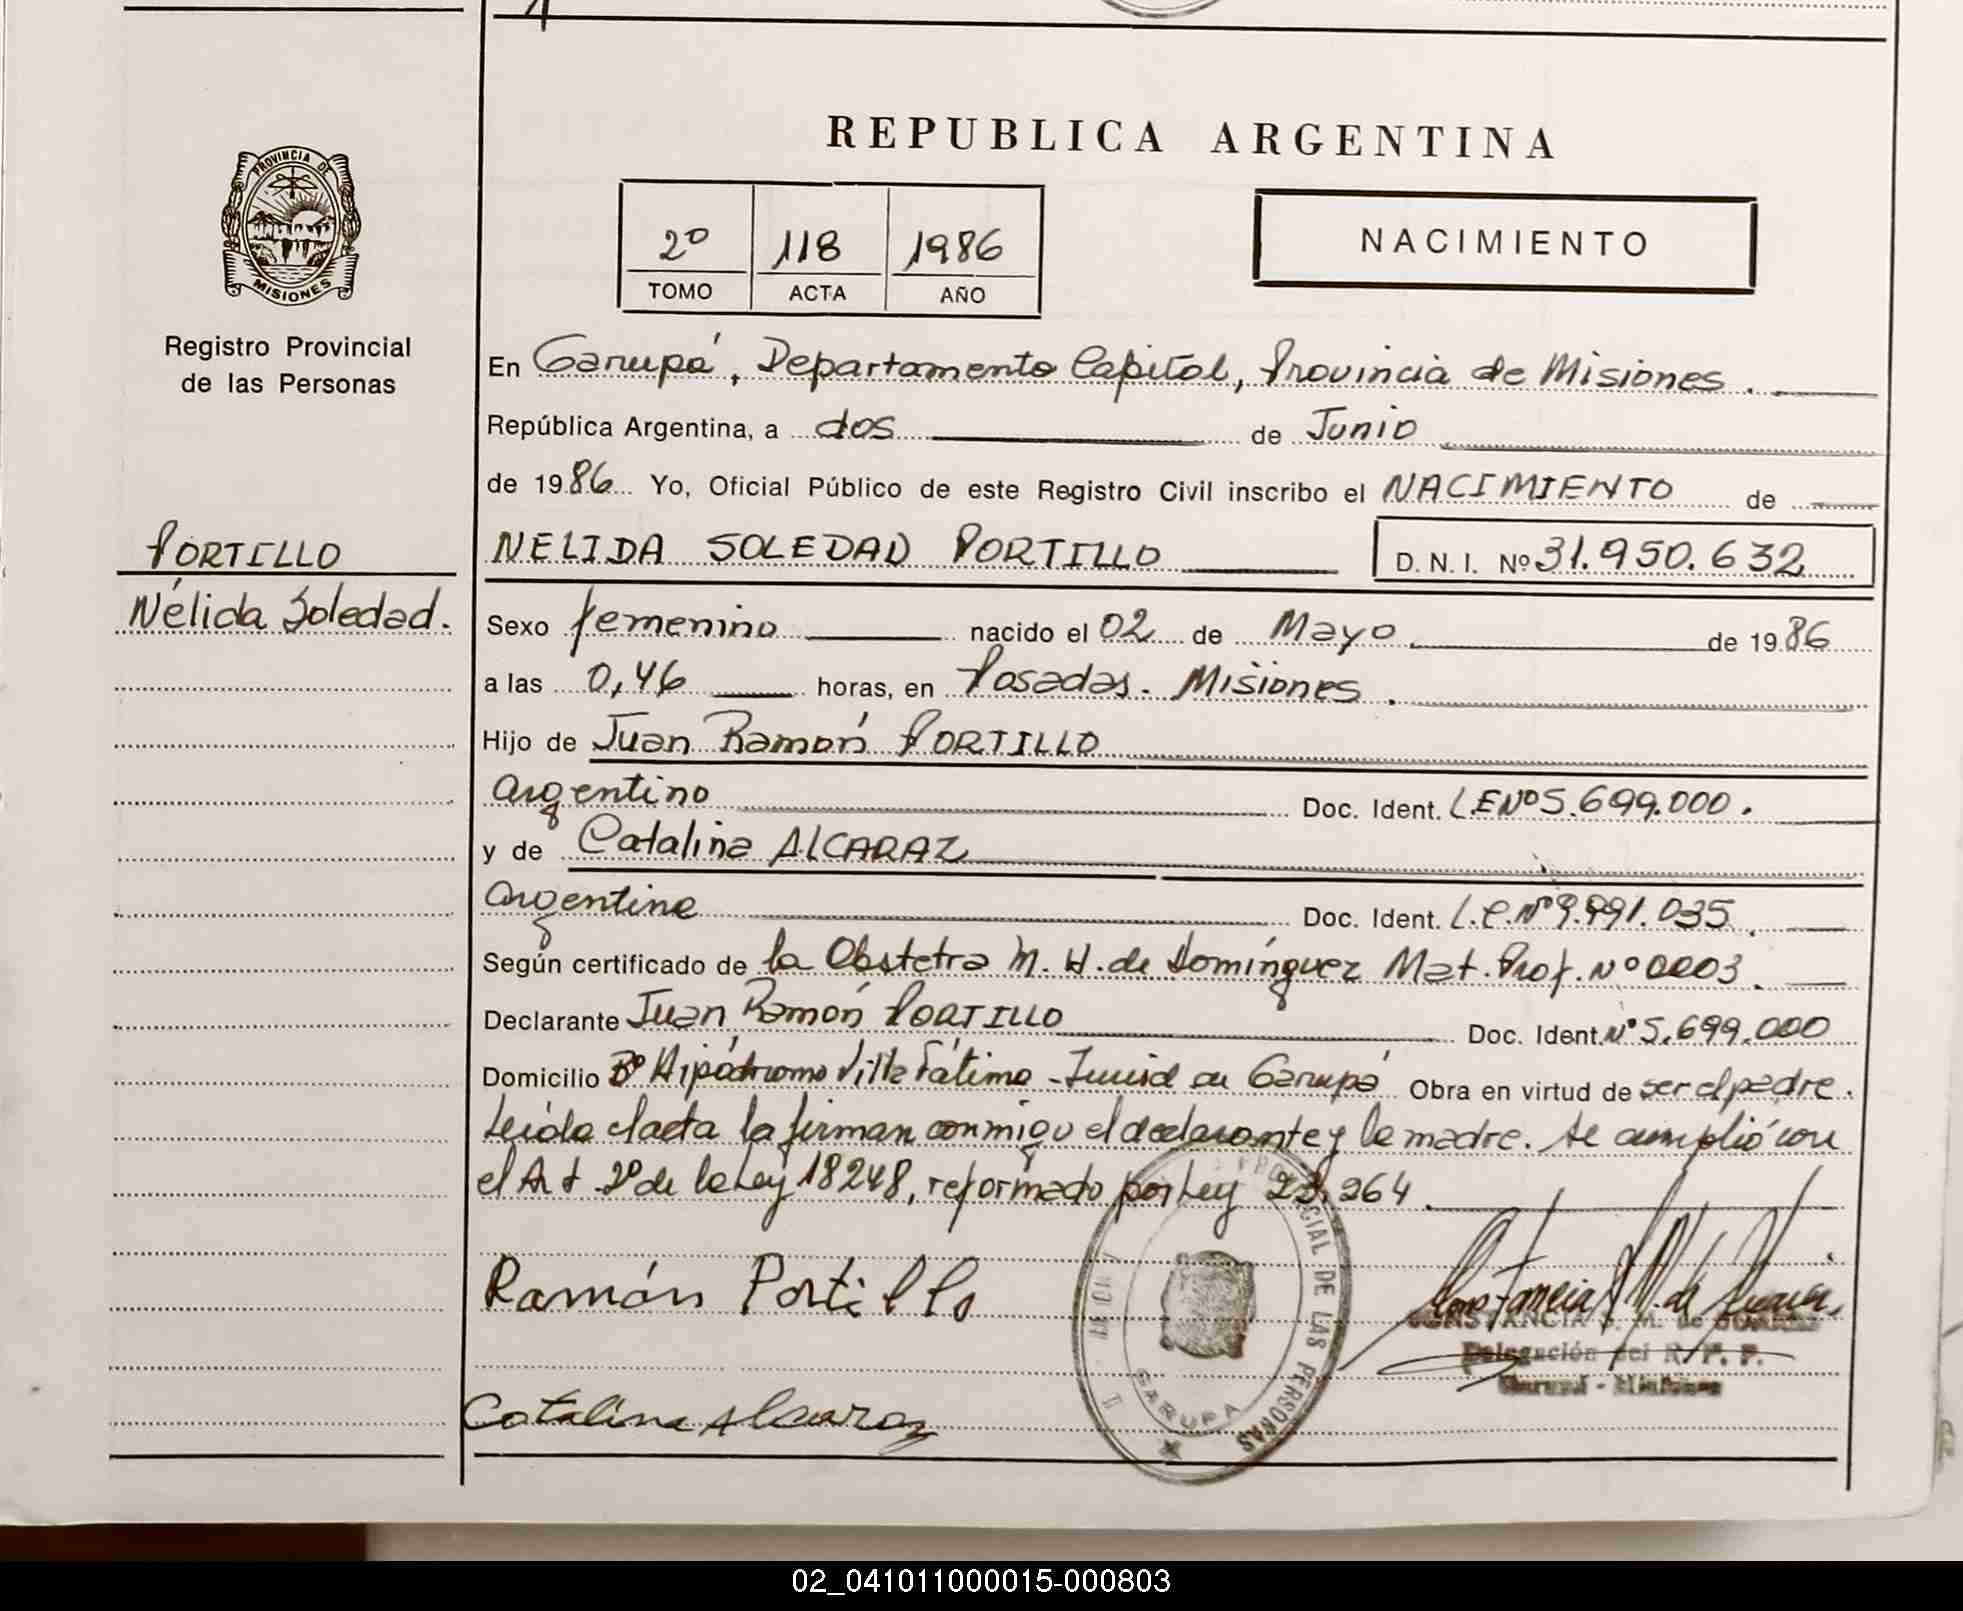 PROVINCIA DE
MISIONES
Registro Provincial
de las Personas
PORTILLO
Nélida Soledad.
REPUBLICA ARGENTINA
2º 118 1986
TOMO ACTA AÑO
NACIMIENTO
En Garupá, Departamento Capital, Provincia de Misiones.
República Argentina, a dos de Junio
de 1986 Yo, Oficial Público de este Registro Civil inscribo el NACIMIENTO de
NELIDA SOLEDAD PORTILLO D. N. I. Nº 31.950.632
Sexo femenino nacido el 02 de Mayo de 1986
a las 0,46 horas, en Posadas. Misiones.
Hijo de Juan Ramón PORTILLO
argentino Doc. Ident. L.E Nº 5.699.000.
y de Catalina ALCARAZ
argentina Doc. Ident. L.C. Nº 9.991.035.
Según certificado de la Obstetra M. H. de Domínguez Mat. Prof. Nº 0003.
Declarante Juan Ramón PORTILLO Doc. Ident. Nº 5.699.000
Domicilio Bº Hipódromo Villa Fátima - en Garupá Obra en virtud de ser el padre.
Leída el acta la firman conmigo el declarante y la madre. Se cumplió con
el Art. 2º de la Ley 18248, reformado por Ley 23.264
Ramón Portillo
PROVINCIAL DE LAS PERSONAS
GARUPA
CONSTANCIA S. M. de
Delegación del R. P. P.
Garupá - Misiones
Catalina Alcaraz
02_041011000015-000803